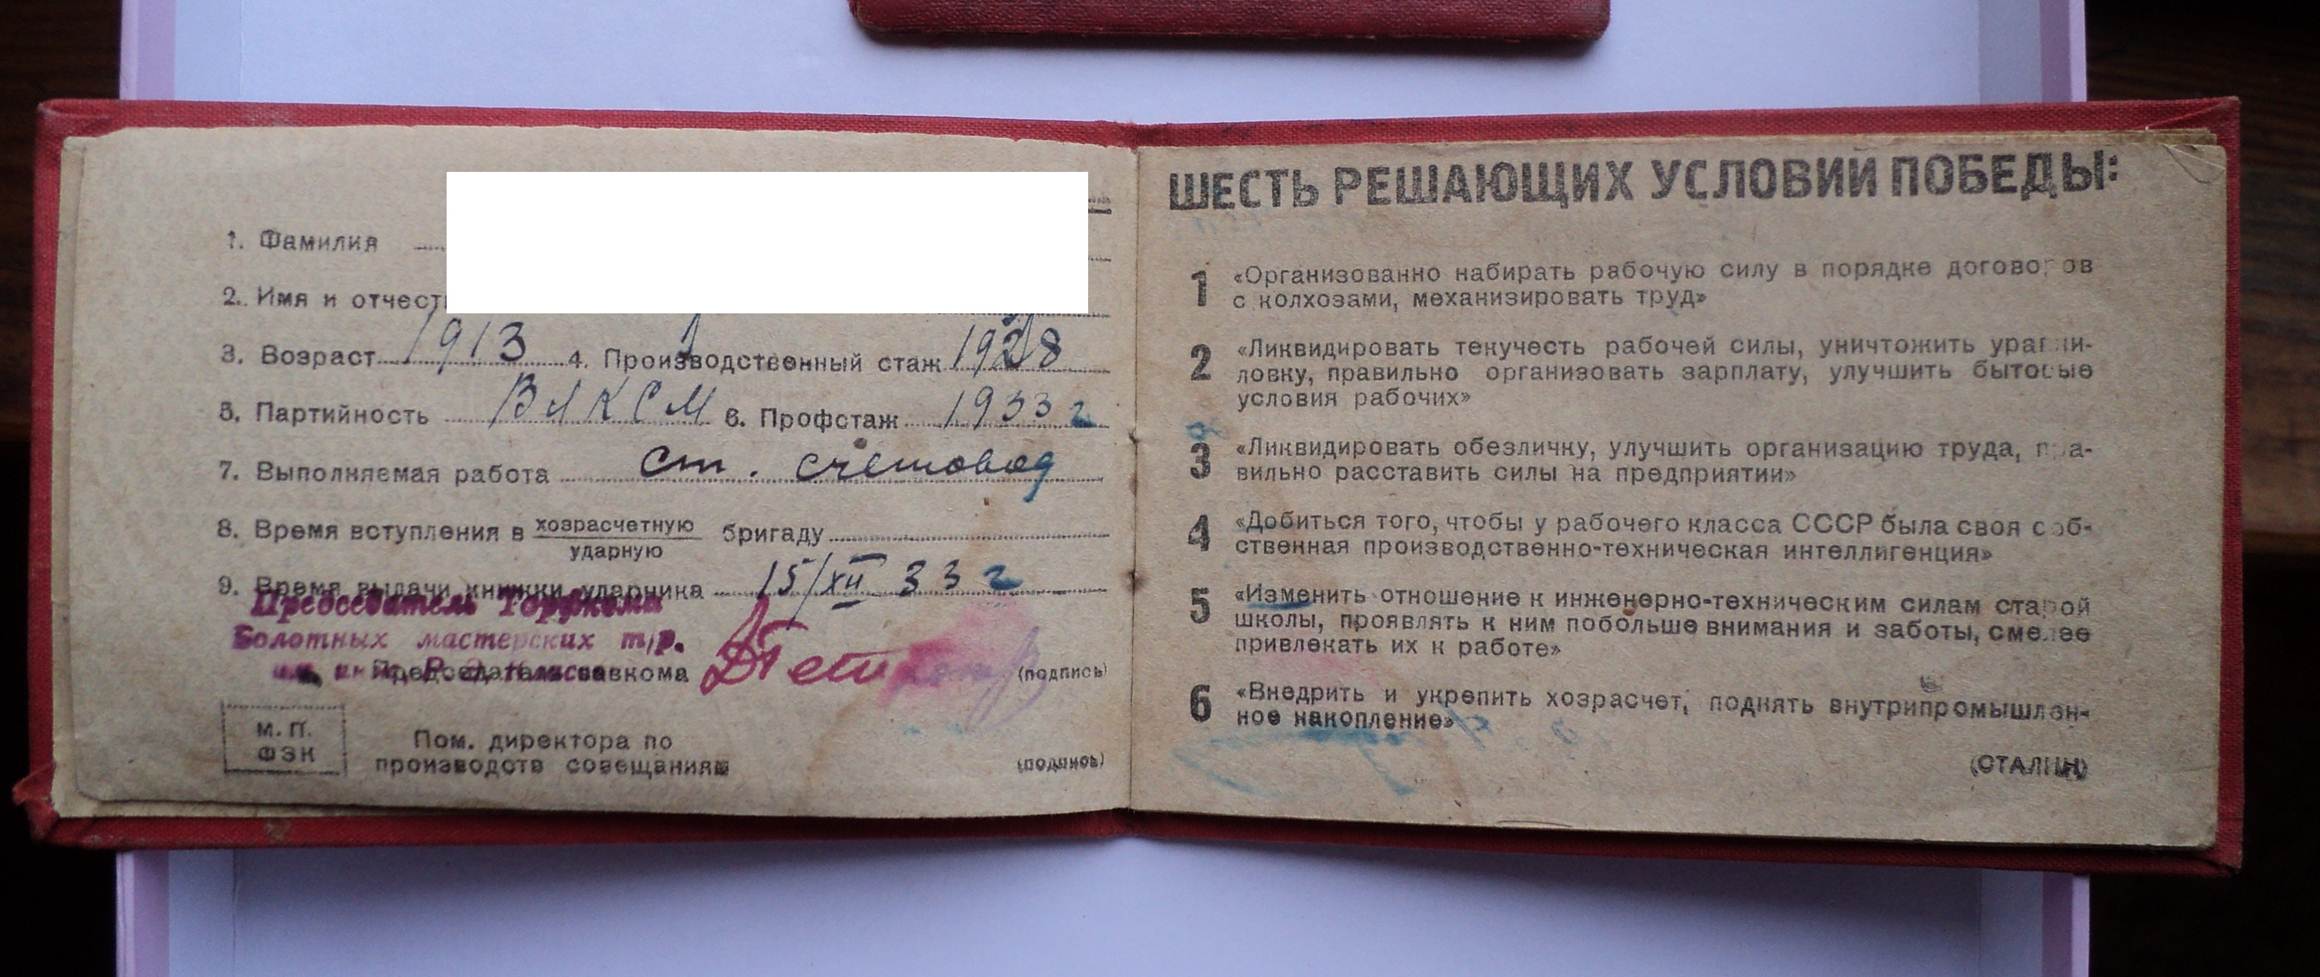 1. Фамилия
2. Имя и отчест
3. Возраст 1913 4. Производственный стаж 1928
5. Партийность ВЛКСМ 6. Профстаж 1933 г
7. Выполняемая работа ст. счетовод
8. Время вступления в хозрасчетную
ударную бригаду
9. Время выдачи книжки ударника 15/XII 33 г
Председатель
Болотных мастерских т/р.
Председатель завкома (подпись)
М. П.
ФЗК
Пом. директора по
производств совещаниям (подпись)
ШЕСТЬ РЕШАЮЩИХ УСЛОВИЙ ПОБЕДЫ:
1 «Организованно набирать рабочую силу в порядке договоров
с колхозами, механизировать труд»
2 «Ликвидировать текучесть рабочей силы, уничтожить уравни-
ловку, правильно организовать зарплату, улучшить бытовые
условия рабочих»
3 «Ликвидировать обезличку, улучшить организацию труда, пра-
вильно расставить силы на предприятии»
4 «Добиться того, чтобы у рабочего класса СССР была своя соб-
ственная производственно-техническая интеллигенция»
5 «Изменить отношение к инженерно-техническим силам старой
школы, проявлять к ним побольше внимания и заботы, смелее
привлекать их к работе»
6 «Внедрить и укрепить хозрасчет, поднять внутрипромышлен-
ное накопление»
(СТАЛИН)